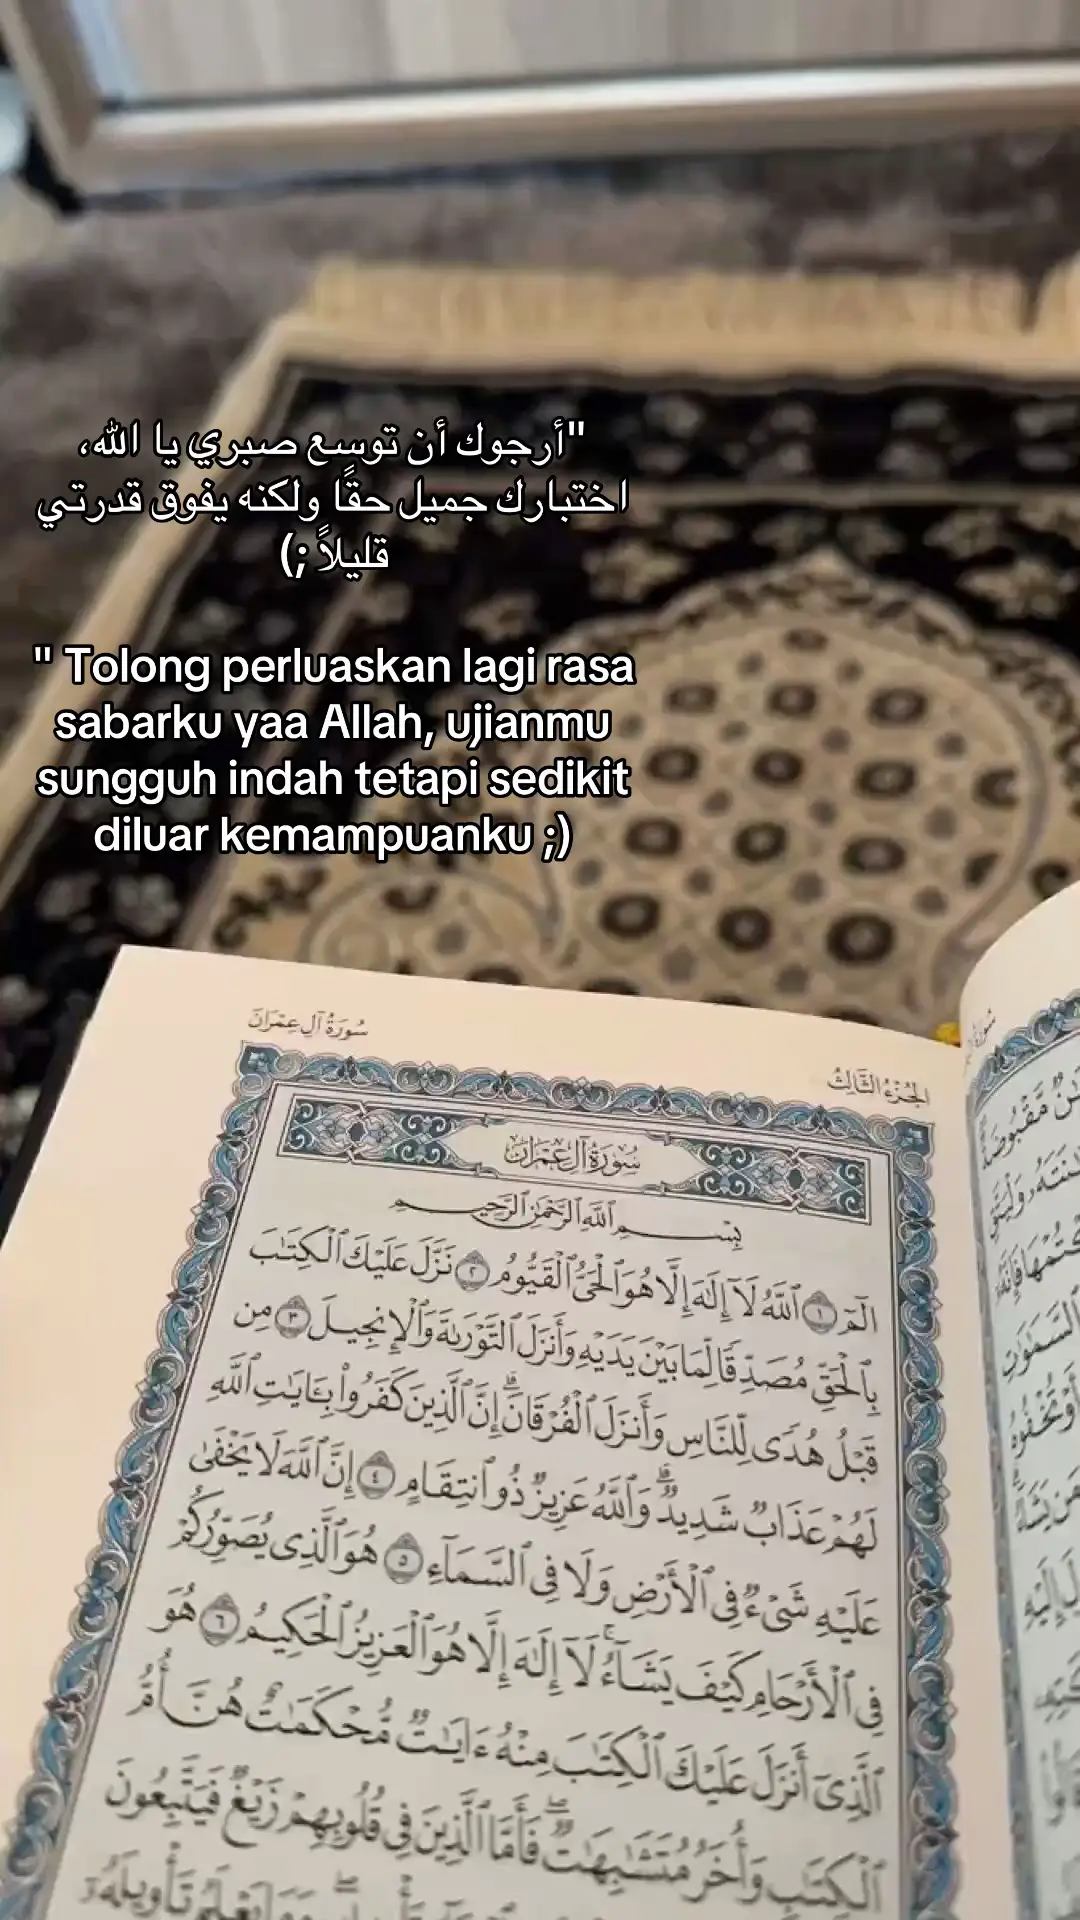 "أرجوك أن توسع صبري يا الله،
اختبارك جميل حقًا ولكنه يفوق قدرتي
قليلاً ;)
" Tolong perluaskan lagi rasa
sabarku yaa Allah, ujianmu
sungguh indah tetapi sedikit
diluar kemampuanku ;)
سُورَةُ آلِ عِمْرَانَ
الجُزْءُ الثَّالِثُ
سُورَةُ آلِ عِمْرَانَ
بِسْمِ ٱللَّهِ ٱلرَّحْمَٰنِ ٱلرَّحِيمِ
الٓمٓ ١ ٱللَّهُ لَآ إِلَٰهَ إِلَّا هُوَ ٱلْحَىُّ ٱلْقَيُّومُ ٢ نَزَّلَ عَلَيْكَ ٱلْكِتَٰبَ
بِٱلْحَقِّ مُصَدِّقًا لِّمَا بَيْنَ يَدَيْهِ وَأَنزَلَ ٱلتَّوْرَىٰةَ وَٱلْإِنجِيلَ ٣ مِن
قَبْلُ هُدًى لِّلنَّاسِ وَأَنزَلَ ٱلْفُرْقَانَ ۗ إِنَّ ٱلَّذِينَ كَفَرُوا۟ بِـَٔايَٰتِ ٱللَّهِ
لَهُمْ عَذَابٌ شَدِيدٌ ۗ وَٱللَّهُ عَزِيزٌ ذُو ٱنتِقَامٍ ٤ إِنَّ ٱللَّهَ لَا يَخْفَىٰ
عَلَيْهِ شَىْءٌ فِى ٱلْأَرْضِ وَلَا فِى ٱلسَّمَآءِ ٥ هُوَ ٱلَّذِى يُصَوِّرُكُمْ
فِى ٱلْأَرْحَامِ كَيْفَ يَشَآءُ ۚ لَآ إِلَٰهَ إِلَّا هُوَ ٱلْعَزِيزُ ٱلْحَكِيمُ ٦ هُوَ
ٱلَّذِىٓ أَنزَلَ عَلَيْكَ ٱلْكِتَٰبَ مِنْهُ ءَايَٰتٌ مُّحْكَمَٰتٌ هُنَّ أُمُّ
ٱلْكِتَٰبِ وَأُخَرُ مُتَشَٰبِهَٰتٌ ۖ فَأَمَّا ٱلَّذِينَ فِى قُلُوبِهِمْ زَيْغٌ فَيَتَّبِعُونَ
تَأْوِيلَهُۥ